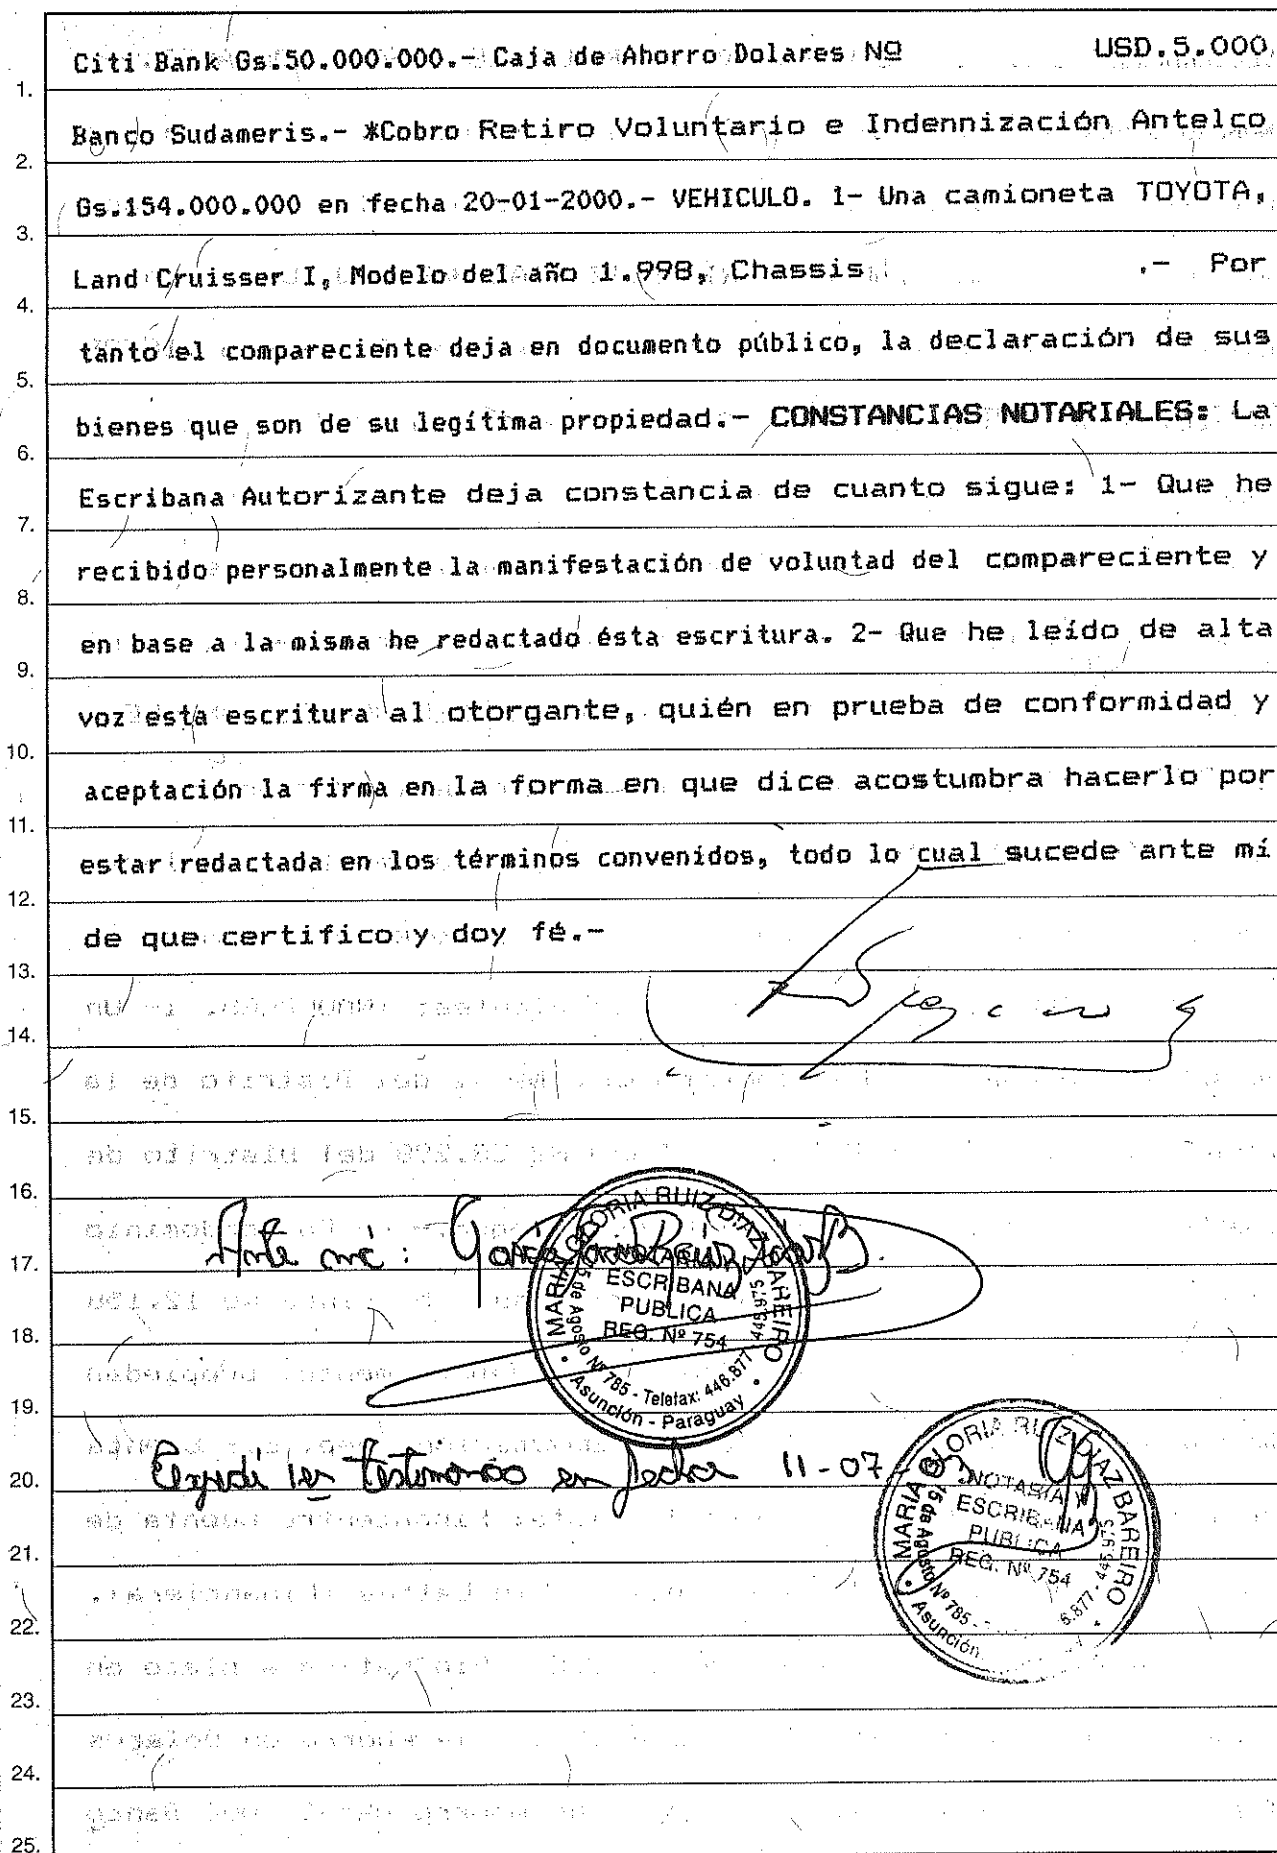 Citi Bank Gs.50.000.000.- Caja de Ahorro Dolares Nº USD.5.000
1.
Banco Sudameris.- *Cobro Retiro Voluntario e Indennización Antelco
2.
Gs.154.000.000 en fecha 20-01-2000.- VEHICULO. 1- Una camioneta TOYOTA,
3.
Land Cruisser I, Modelo del año 1.998, Chassis .- Por
4.
tanto el compareciente deja en documento público, la declaración de sus
5.
bienes que son de su legítima propiedad.- CONSTANCIAS NOTARIALES: La
6.
Escribana Autorizante deja constancia de cuanto sigue: 1- Que he
7.
recibido personalmente la manifestación de voluntad del compareciente y
8.
en base a la misma he redactado ésta escritura. 2- Que he leído de alta
9.
voz esta escritura al otorgante, quién en prueba de conformidad y
10.
aceptación la firma en la forma en que dice acostumbra hacerlo por
11.
estar redactada en los términos convenidos, todo lo cual sucede ante mí
12.
de que certifico y doy fé.-
13.
14.
15.
16.
Ante mí:
17.
MARIA GLORIA RUIZ DIAZ BAREIRO
NOTARIA Y
ESCRIBANA
PUBLICA
REG. Nº 754
15 de Agosto Nº 785 - Telefax: 446.877 - 445.975
Asunción - Paraguay
18.
19.
Expedí 1er testimonio en fecha 11-07
20.
MARIA GLORIA RUIZ DIAZ BAREIRO
NOTARIA Y
ESCRIBANA
PUBLICA
REG. Nº 754
15 de Agosto Nº 785 - 6.877 - 445.975
Asunción
21.
22.
23.
24.
25.